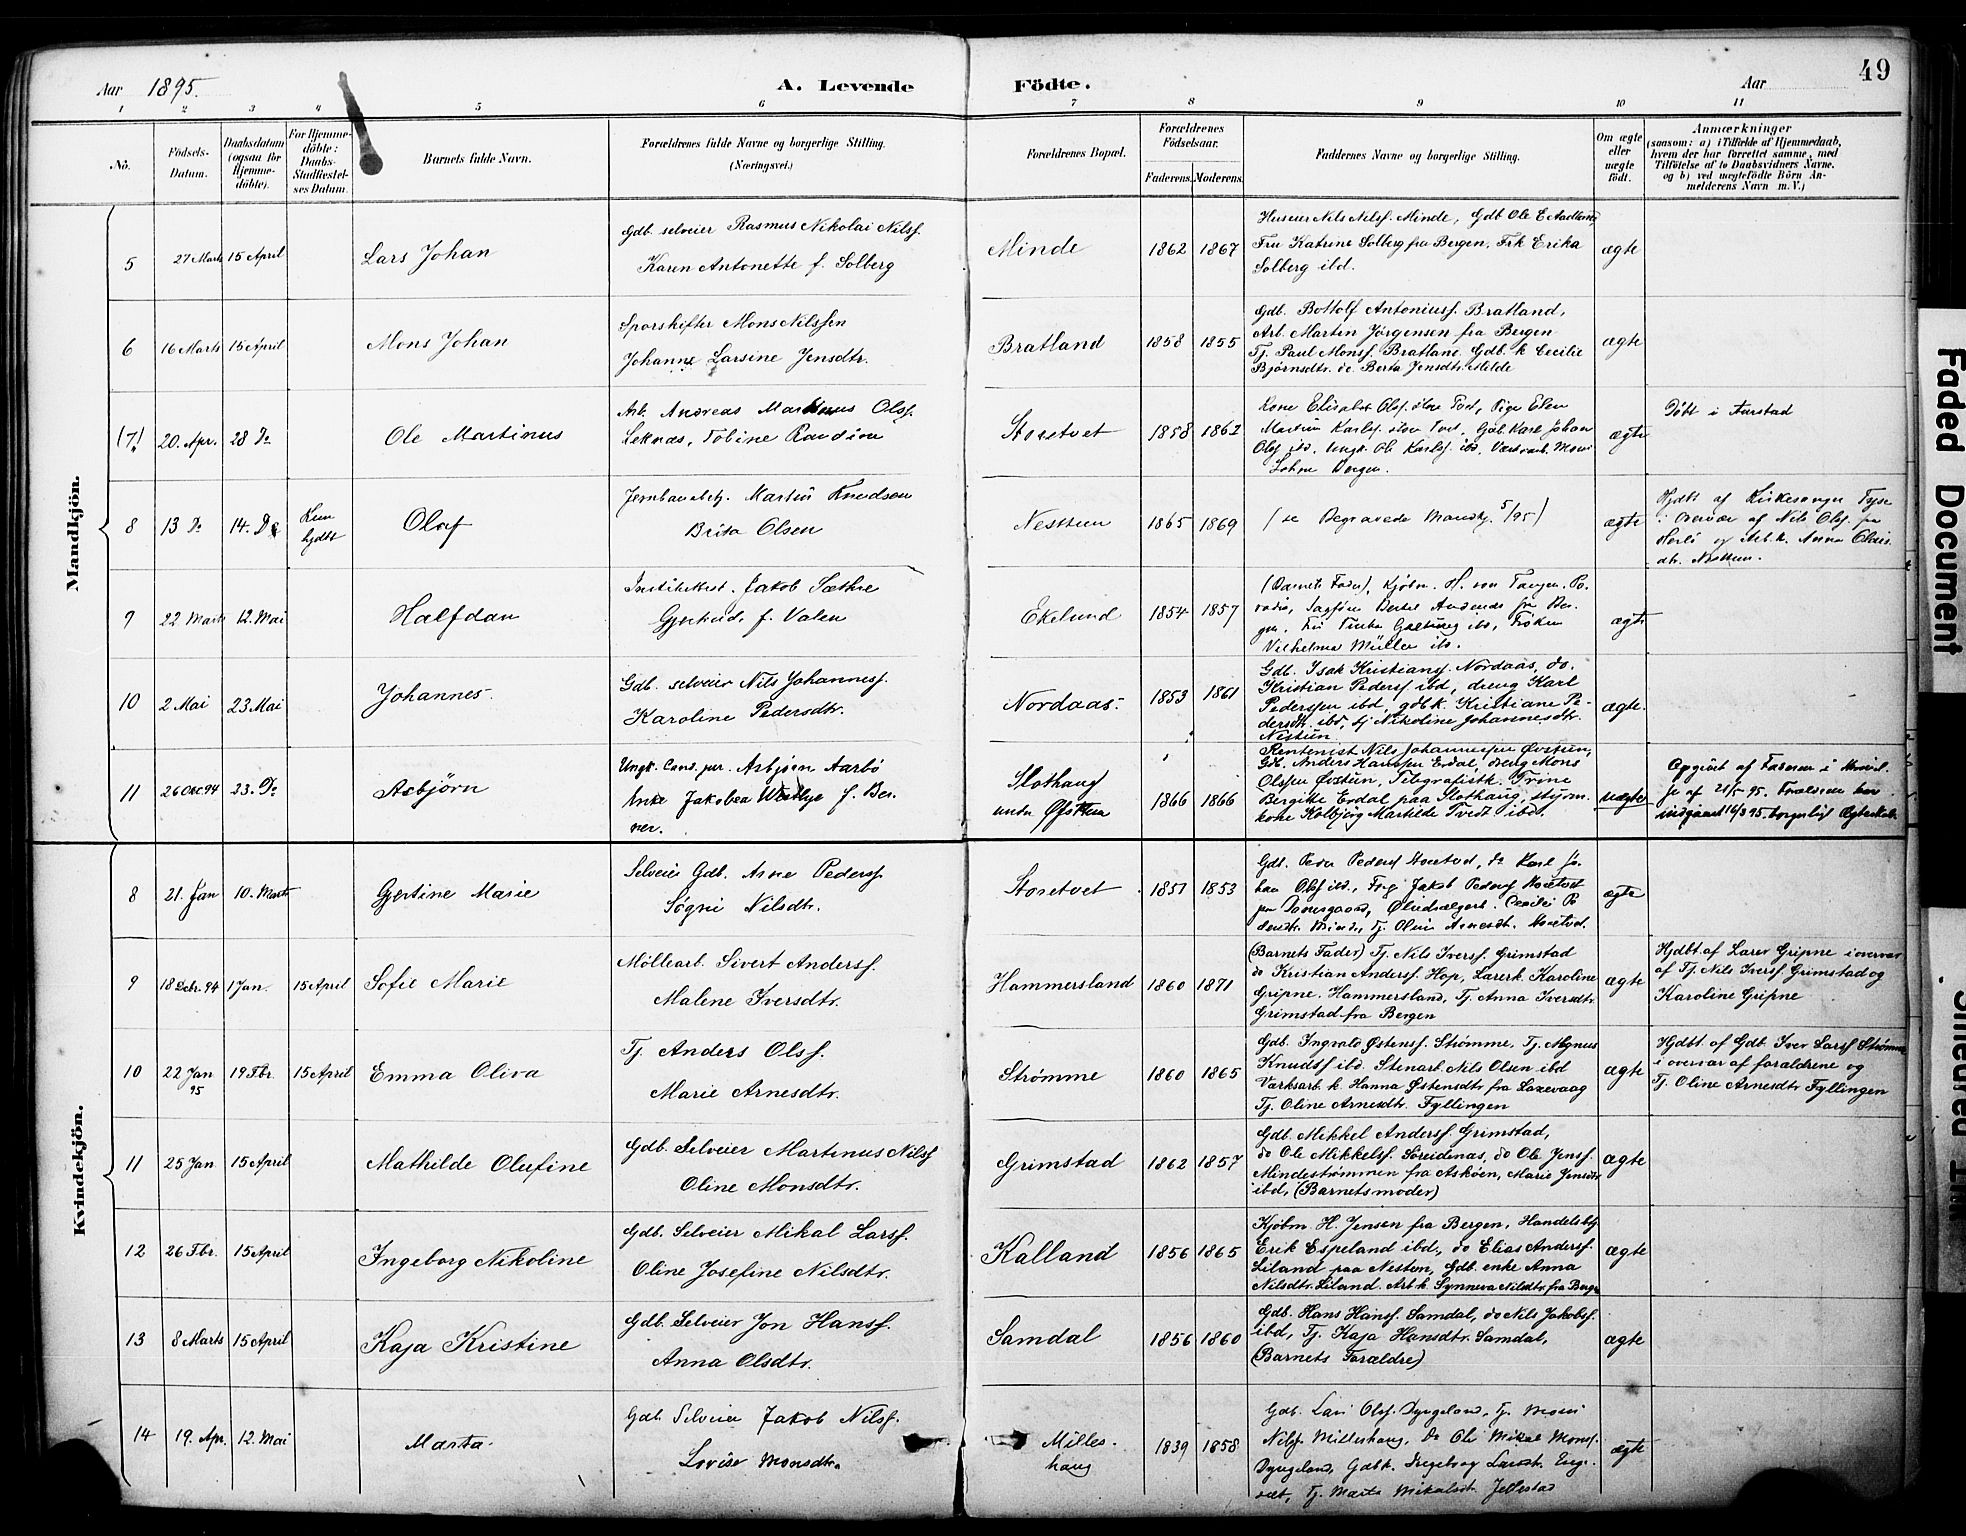 49
Aar 1895. A. Levende Födte. Aar
1 2 3 4 5 6 7 8 9 10 11
No. Födsels-Datum. Daabsdatum (ogsaa for Hjemme-döbte). For Hjemme-döbte: Daabs-Stadfæstel-ses Datum. Barnets fulde Navn. Forældrenes fulde Navne og borgerlige Stilling. (Næringsvei.) Forældrenes Bopæl. Forældrenes Födselsaar. Faderens. Moderens. Faddernes Navne og borgerlige Stilling. Om ægte eller uægte födt. Anmærkninger (saasom: a) i Tilfælde af Hjemmedaab, hvem der har forrettet samme, med Tilföielse af to Daabsvidners Navne, og b) ved uægtefödte Börn An-melderens Navn m. V.)
Mandkjön.
5 27 Marts 15 April Lars Johan
Gdb. selveier Rasmus Nikolai Nilsf.
Karen Antonette f. Solberg
Minde 1862 1867
Huseier Nils Nilsf. Minde, Gdb Ole E Aadland,
Fru Katrine Solberg fra Bergen. Frk Erika
Solberg ibd.
ægte
6 16 Marts 15 April Mons Johan
Sporskifter Mons Nilssen
Johanne Larsine Jensdtr.
Bratland 1858 1855
Gdb. Bottolf Antoniusf. Bratland,
Arb. Martin Jörgensen fra Bergen
Tj. Paul Monsf. Bratland. Gdb. k Cecilie
Bjørnsdtr. do. Berta Jensdtr. Milde
ægte
(7!) 20. Apr. 28 Do Ole Martinus
Arb. Andreas Martinus Olsf.
Leknæs, Tobine
Storetvet 1858 1862
Kone Elisabet Olsf. Tvet, Pige Elen
Karlsf. Tvet, Gdb. Karl Johan
Olsf ibd. Ungk. Ole Karlsf. ibd.
Bergen.
ægte
Döbt i Faastad
8 13 Do 14. Do Kun hjdbt Olaf
Jernbanebetj. Martin Knudson
Brita Olsen
Nesttun 1865 1869
(se Begravede Mandkj. 5/95)
ægte
Hjdbt af Kirkesanger Tyse
i Overvær af Nils Olsf. fra
og Arb.k. Anna
dtr. Nesttun.
9 22 Marts 12. Mai Halfdan
Institutbest. Jakob Sæthre
Gjertrud, f. Valen
Ekelund 1854 1857
(Barnets Fader), Kjöbm. H. von Tangen.
Sagförer Bertel fra Ber-
gen. Fru ibd, Fröken
Vilhelma Müller ibd.
ægte
10 2 Mai 23 Mai Johannes.
Gdb. selveier Nils Johannesf.
Karoline Pedersdtr.
Nordaas. 1853 1861
Gdb. Isak Kristiansf. Nordaas, do.
Kristian Pedersf ibd, dreng Karl
Pederssen ibd, gdb k. Kristiane Pe-
dersdtr. ibd, tj Nikoline Johannesdtr.
Nestun
ægte.
11 26 Okt 94 23. Do Asbjörn
Ungk. Cand. jur. Asbjörn Aarbö
Enke Jakobea Westbye f. Ber-
ner.
Slothaug
under Øvsttun 1866 1866
Rentenist Nils Johannessen Øvstun,
Gdb. Anders Hanssen Erdal, dreng Mons
Olssen Øvstun, Telegrafistk. Trine
Bergitte Erdal paa Slothaug, styrm.
kone Kolbjörg Martilde Tvedt ibd.
uægte
Opgivet af Faderen i Skrivel-
se af 21/5 95. Forældrene har
indgaaet 16/3 95 borgerligt Ægteskab.
Kvindekjön.
8 21. Jan 10. Marts Gjertine Marie
Selveier Gdb. Arne Pedersf
Sögni Nilsdtr.
Storetvet 1851 1853
Gdb. Peder Pedersf Storetvet, do Karl Jo-
han Olsf ibd., Jakob Pedersf Storetvet
Cecilie Pe
dersdtr. Minde, Tj. Olivi Arnesdtr. Storetvet.
ægte
9 18 Decbr. 94 1 Jan. 15 April Sofie Marie
Möllearb. Sivert Andersf.
Malene Iversdtr.
Hammersland 1860 1871
(Barnets Fader) Tj. Nils Iversf. Grimstad
do Kristian Andersf. Hop, Lærerk. Karoline
Gripne. Hammersland, Tj. Anna Iversdtr.
Grimstad fra Bergen
ægte
Hjdbt. af Lærer Gripne i overvær
af Tj. Nils Iversf. Grimstad og
Karoline Gripne
10 22 Jan 95 19 Fbr. 15 April Emma Oliva
Tj. Anders Olsf.
Marie Arnesdtr.
Strömme 1860 1865
Gdb. Ingvald Østensf. Strömme, Tj. Magnus
Knudsf ibd. Stenarb. Nils Olsen ibd
Værksarb. k. Hanna Østensdtr fra Laxevaag
Tj. Oline Arnesdtr. Fyllingen
ægte
Hjdbt af Gdb. Iver Larsf Strømme
i overvær af forældrene og
Tj. Oline Arnesdtr Fyllingen
11 25 Jan 15 April Mathilde Olufine
Gdb. Selveier Martinus Nilsf
Oline Monsdtr.
Grimstad 1862 1857
Gdb. Mikkel Andersf. Grimstad,
do Ole Mikkelsf. Söreidenæs, do Ole Jensf.
Mindeströmmen fra Asköen, Marie Jensdtr
ibd, (Barnets moder)
ægte
12 26 Fbr. 15 April Ingeborg Nikoline
Gdb. Selveier Mikal Larsf.
Oline Josefine Nilsdtr.
Kalland 1856 1865
Kjöbm. H. Jensen fra Bergen, Handelsbtj.
Erik Espeland ibd., do Elias Andersf.
Liland paa Nestun, Gdb. enke Anna
Nilsdtr. Liland. Arb k. Synneva Nilsdtr. fra Berge
ægte
13 8 Marts 15 April Kaja Kristine
Gdb. Selveier Jon Hansf.
Anna Olsdtr.
Samdal 1856 1860
Gdb. Hans Hansf. Samdal, do Nils Jakobsf.
ibd, Tj. Kaja Hansdtr. Samdal,
(Barnets Forældre)
ægte
14 19. Apr. 12. Mai Marta.
Gdb. Selveier Jakob Nilsf.
Lovise Monsdtr.
Milles-
haug 1839 1858
Gdb. Lars Olsf. Dyngeland, Tj. Mons
Nilsf. Milleshaug, do Ole Mikal Monsf.
Dyngeland, Gdb k. Ingeborg Larsdt.
Tj. Marta Mikalsdt. Jellestad
ægte
Faded Document